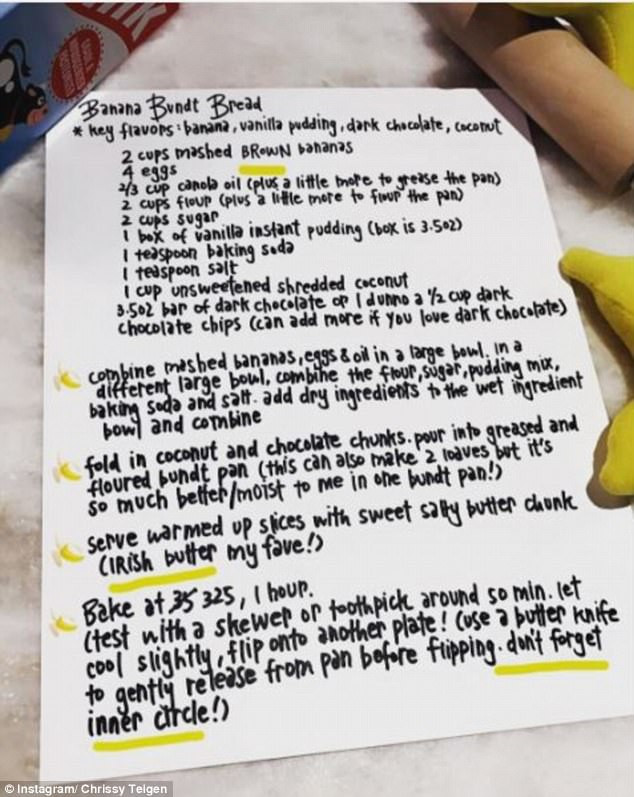 Banana Bundt Bread
* key flavors: banana, vanilla pudding, dark chocolate, coconut
2 cups mashed BROWN bananas
4 eggs
2/3 cup canola oil (plus a little more to grease the pan)
2 cups flour (plus a little more to flour the pan)
2 cups sugar
1 box of vanilla instant pudding (box is 3.5oz)
1 teaspoon baking soda
1 teaspoon salt
1 cup unsweetened shredded coconut
3.5oz bar of dark chocolate or I dunno a 1/2 cup dark
chocolate chips (can add more if you love dark chocolate)
combine mashed bananas, eggs & oil in a large bowl. in a
different large bowl, combine the flour, sugar, pudding mix,
baking soda and salt. add dry ingredients to the wet ingredient
bowl and combine
fold in coconut and chocolate chunks. pour into greased and
floured bundt pan (this can also make 2 loaves but it's
so much better/moist to me in one bundt pan!)
serve warmed up slices with sweet salty butter chunk
(IRISH butter my fave!)
Bake at 325, 1 hour.
(test with a skewer or toothpick around 50 min. let
cool slightly, flip onto another plate! (use a butter knife
to gently release from pan before flipping. don't forget
inner circle!)
© Instagram/ Chrissy Teigen